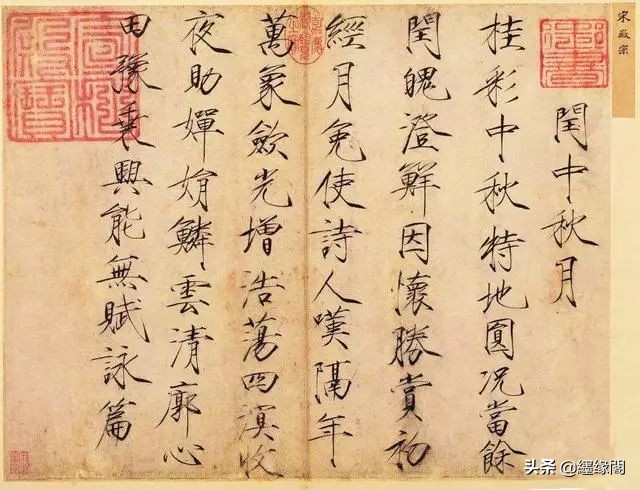 宋徽宗
閏中秋月
桂彩中秋特地圓況當餘
閏魄澄鮮因懷勝賞初
經月免使詩人嘆隔年
萬象斂光增浩蕩四溟收
夜助嬋娟鱗雲清廓心
田豫乘興能無賦詠篇
御書
头条